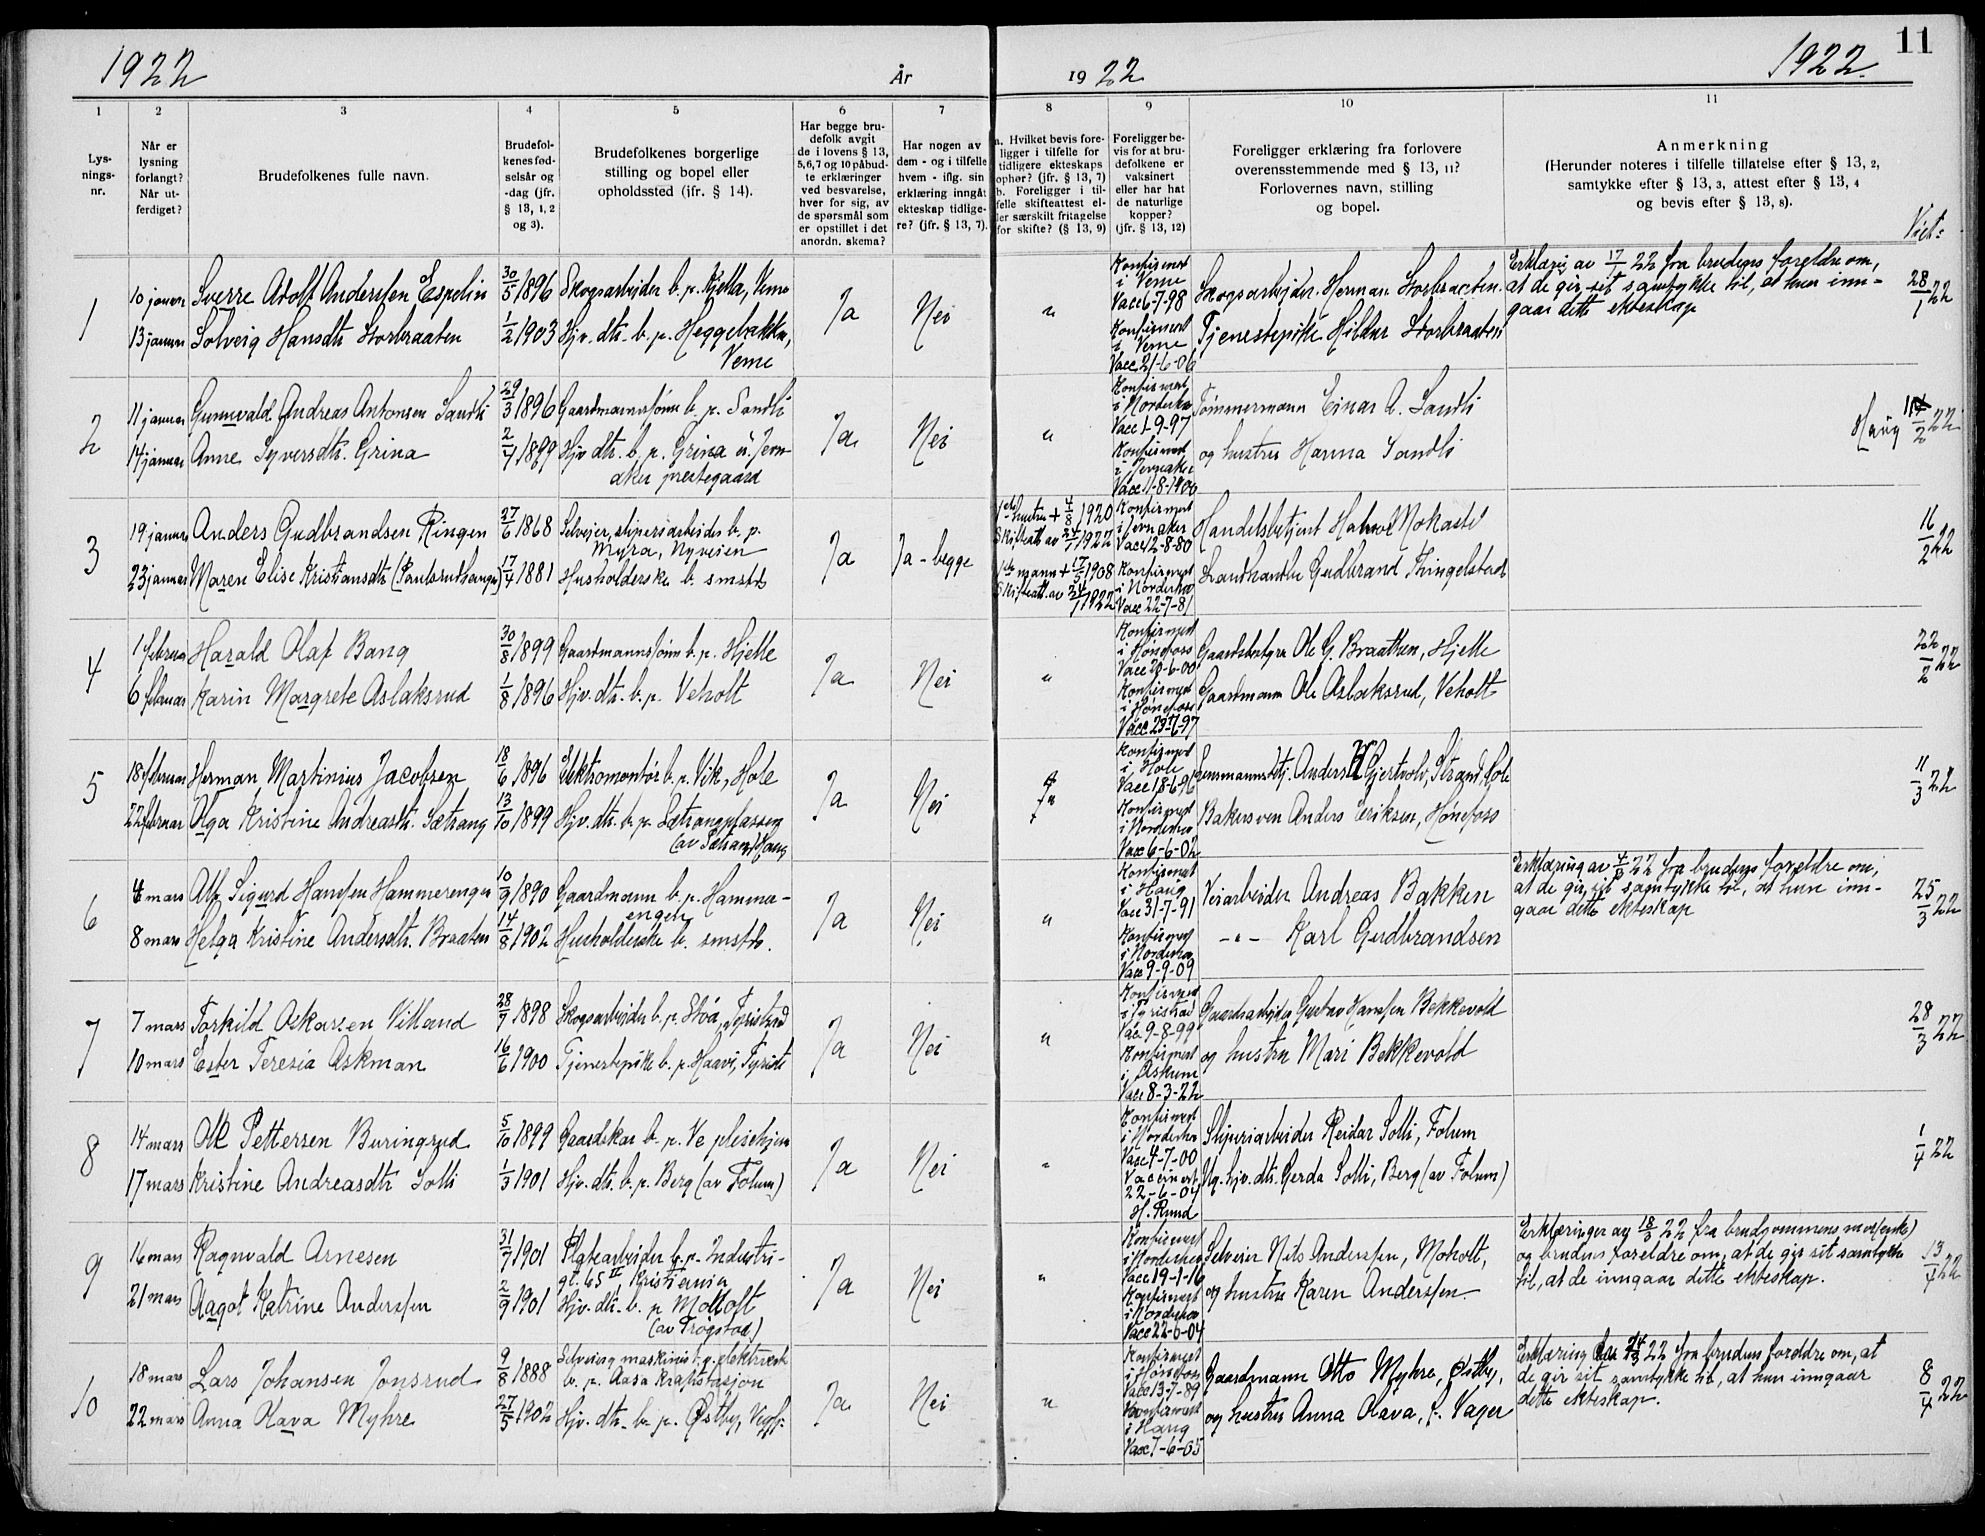 1922 År 19 22 1922. 11
1 2 3 4 5 6 7 8 9 10 11
Lys-
nings-
nr.
Når er
lysning
forlangt?
Når ut-
ferdiget?
Brudefolkenes fulle navn.
Brudefol-
kenes fød-
selsår og
-dag (jfr.
§ 13, 1, 2
og 3).
Brudefolkenes borgerlige
stilling og bopel eller
opholdssted (jfr. § 14).
Har begge bru-
defolk avgit
de i lovens § 13,
5, 6, 7 og 10 påbud-
te erklæringer
ved besvarelse,
hver for sig, av
de spørsmål som
er opstillet i det
anordn. skema?
Har nogen av
dem - og i tilfelle
hvem - iflg. sin
erklæring inngåt
ekteskap tidlige-
re? (jfr. § 13, 7).
a. Hvilket bevis fore-
ligger i tilfelle for
tidligere ekteskaps
ophør? (jfr. § 13, 7)
b. Foreligger i til-
felle skifteattest el-
ler særskilt fritagelse
for skifte? (§ 13, 9)
Foreligger be-
vis for at bru-
defolkene er
vaksinert
eller har hat
de naturlige
kopper?
(jfr. § 13, 12)
Foreligger erklæring fra forlovere
overensstemmende med § 13, 11?
Forlovernes navn, stilling
og bopel.
Anmerkning
(Herunder noteres i tilfelle tillatelse efter § 13, 2,
samtykke efter § 13, 3, attest efter § 13, 4
og bevis efter § 13, 8).
Viet:
1
10 januar
13 januar
Sverre Adolf Anderssen Espelin
Solveig Hansdtr Storbraaten
30/5 1896
1/2 1903
Skogsarbeider b. p. Kjella, Veme
Hjv. dtr. b. p. Heggebakka,
Veme
Ja
Nei
"
Konfirmert
i Veme
Vacc 6-7-98
Konfirmert
i Veme
Vacc 21-6-06
Skogsarbeider Herman Storbraaten.
Tjenestepike Hildur Storbraaten
Erklæring av 17/1 22 fra brudens foreldre om,
at de gir sit samtykke til, at hun inn-
gaar dette ekteskap
28/1 22
2
11 januar
14 januar
Gunnvald Andreas Antonsen Sandli
Anne Syversdtr. Grina
29/3 1896
2/7 1899
Gaardmannssønn b. p. Sandli
Hjv dtr. b. p. Grina i Jevn-
aker prestegaard
Ja
Nei
"
Konfirmert
i Norderhov
Vacc 1-9-97
Konfirmert
i Jevnaker
Vacc 11-8-1900
Tømmermann Einar A. Sandli
og hustru Hanna Sandli
Haug 14/2 22
3
19 januar
23 januar
Anders Gudbrandsen Ringen
Maren Elise Kristiansdtr (Paulsrudhaugen)
27/6 1868
17/4 1881
Selveier, sliperiarbeider b. p.
Myra, Nyveien
Husholderske b. smstds
Ja
Ja - begge
hustru + 4/8 1920
Skifteatt. av 24/1 1922
mann + 17/5 1908
Skifteatt. av 24/1 1922
Konfirmert
i Jevnaker
Vacc 12-8-80
Konfirmert
i Norderhov
Vacc 22-7-81
Handelsbetjent Halvor Mokastet
Landhandler Gudbrand Thingelstad
16/2 22
4
1 februar
6 februar
Harald Olaf Bang
Karin Margrete Aslaksrud
30/8 1899
1/8 1896
Gaardmannssønn b. p. Hjelle
Hjv. dtr. b. p. Veholt
Ja
Nei
"
Konfirmert
i Hønefoss
Vacc 20-6-00
Konfirmert
i Hønefoss
Vacc 23-7-97
Gaardbestyrer Ole G. Braathen, Hjelle
Gaardmann Ole Aslaksrud, Veholt
22/2 22
5
18 februar
22 februar
Herman Martinius Jacobsen
Olga Kristine Andreasdtr. Sætrang
18/6 1896
13/10 1899
Elektromontør b. p. Vik, Hole
Hjv. dtr. b. p. Sætrangplassen
(av Sætrang) Haug
Ja
Nei
"
Konfirmert
i Hole
Vacc 18-6-96
Konfirmert
i Norderhov
Vacc 6-6-02
Lensmannsbetj. Anders Gjertvold, Strand, Hole
Bakersven Anders Eriksen, Hønefoss
11/3 22
6
4 mars
8 mars
Alf Sigurd Hanssen Hammerengen
Helga Kristine Andersdtr. Braaten
10/9 1890
14/8 1902
Gaardmann b. p. Hammer-
engen
Husholderske b. smstds.
Ja
Nei
"
Konfirmert
i Haug
Vacc 31-7-91
Konfirmert
i Norderhov
Vacc 9-9-09
Veiarbeider Andreas Bakken
- " - Karl Gudbrandsen
Erklæring av 4/3 22 fra brudens foreldre om,
at de gir sit samtykke til, at hun inn-
gaar dette ekteskap
25/3 22
7
7 mars
10 mars
Torkild Oskarsen Villand
Ester Teresia Askman
28/7 1898
16/6 1900
Skogsarbeider b. p. Stóa, Tyristrand
Tjenestepike b. p. Haavi, Tyristr
Ja
Nei
"
Konfirmert
i Tyristrand
Vac. 9-8-99
Konfirmert
i Askum
Vacc 8-3-22
Gaardsarbeider Gustav Hanssen Bekkevold
og hustru Mari Bekkevold
28/3 22
8
14 mars
17 mars
Ole Pettersen Buringrud
Kristine Andreasdtr Solli
5/10 1899
1/3 1901
Gaardskar b. p. Ve pleiehjem
Hjv. dtr. b. p. Berg (av Folum)
Ja
Nei
"
Konfirmert
i Norderhov
Vacc 4-7-00
Vaccinert
22-6-04
H. Ruud
Sliperiarbeider Reidar Solli, Folum
Ug. hjv. dtr. Gerda Solli, Berg (av Folum)
1/4 22
9
16 mars
21 mars
Ragnvald Arnesen
Aagot Katrine Anderssen
31/7 1901
2/9 1901
Platearbeider b. p. Industri-
gt. 65 II, Kristiania
Hjv. dtr. b. p Moholt
(av Trøgstad)
Ja
Nei
"
Konfirmert
i Norderhov
Vacc 19-1-16
Konfirmert
i Norderhov
Vacc 22-6-04
Selveier Nils Anderssen, Moholt,
og hustru Karen Anderssen.
Erklæringer av 18/3 22 fra brudgommens mor (enke)
og brudens foreldre om, at de gir sit samtykke
til, at de inngaar dette ekteskap.
13/4 22
10
18 mars
22 mars
Lars Johansen Jonsrud
Anna Olava Myhre
9/8 1888
27/5 1902
Selveier og maskinist v. elektrverk
b. p. Aasa kraftstasjon
Hjv. dtr. b. p. Østby,
Ja
Nei
"
Konfirmert
i Hønefoss
Vacc 13-7-89
Konfirmert
i Haug
Vacc 7-6-05
Gaardmann Otto Myhre, Østby,
og hustru Anna Olava, f. Vager
Erklæring 22 fra brudens foreldre om, at
de gir sit samtykke til, at hun inngaar
dette ekteskap.
8/4 22